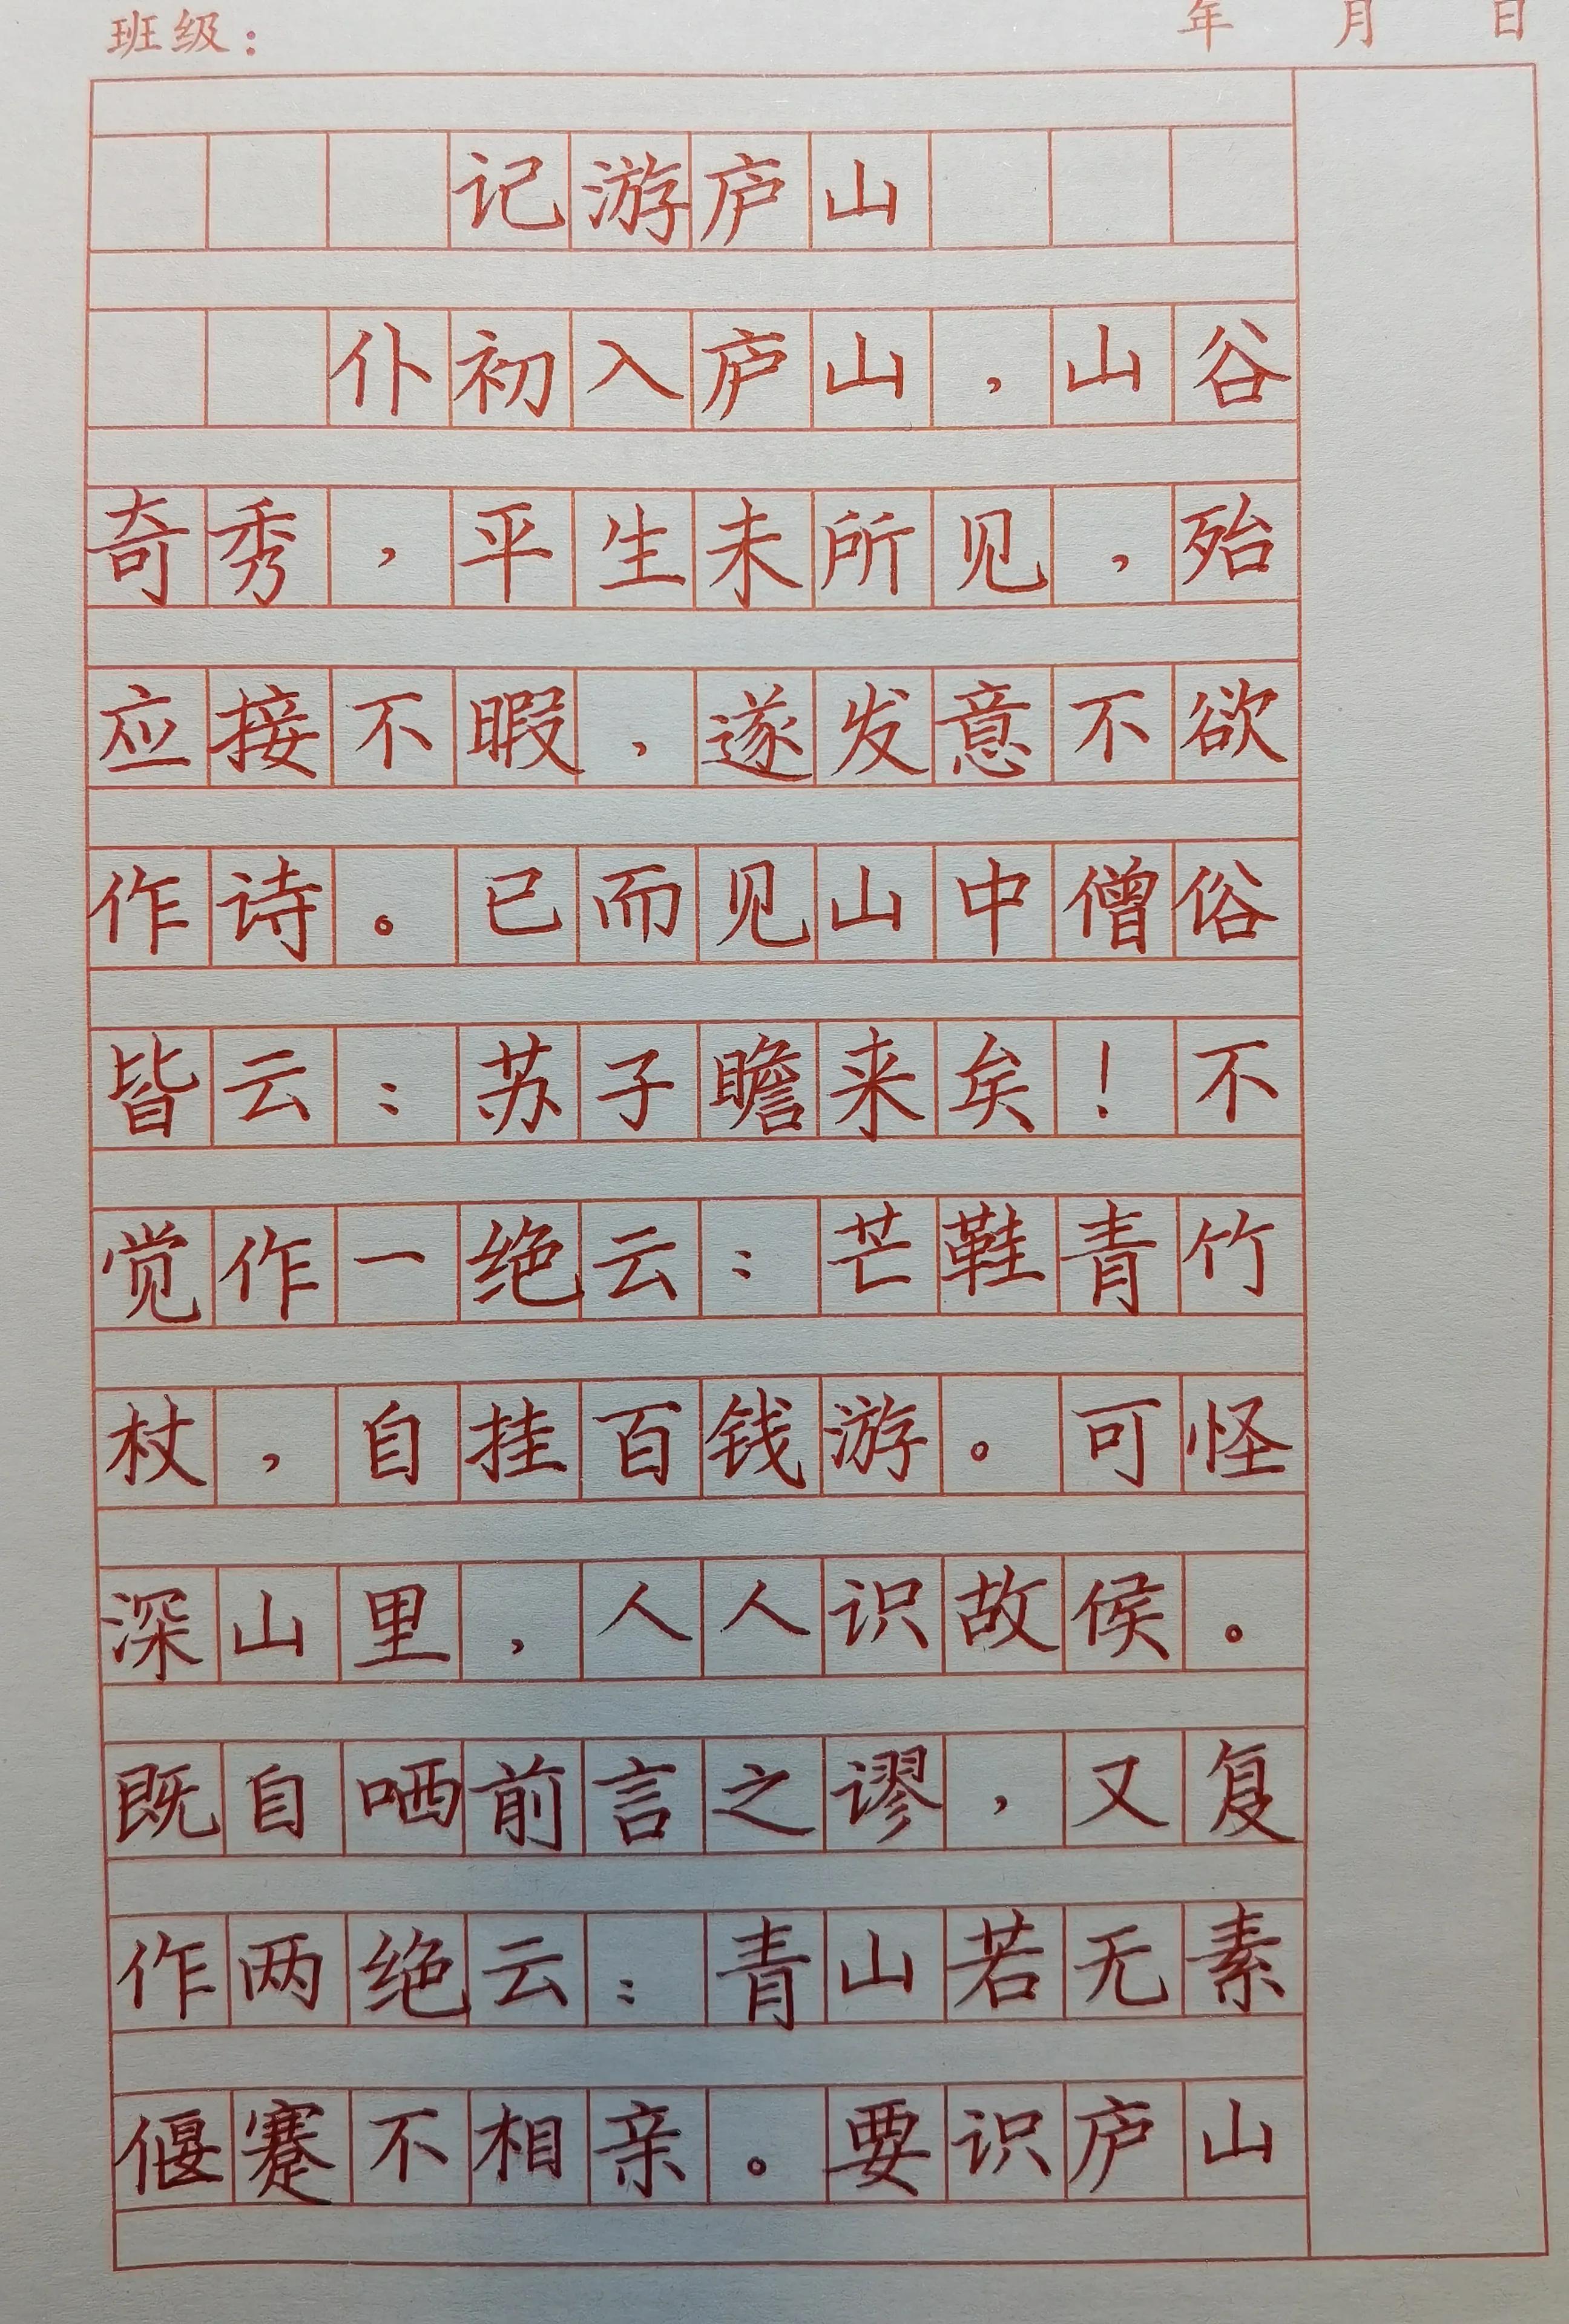 班级： 年 月 日
记游庐山
仆初入庐山，山谷
奇秀，平生未所见，殆
应接不暇，遂发意不欲
作诗。已而见山中僧俗
皆云：苏子瞻来矣！不
觉作一绝云：芒鞋青竹
杖，自挂百钱游。可怪
深山里，人人识故侯。
既自哂前言之谬，又复
作两绝云：青山若无素
偃蹇不相亲。要识庐山